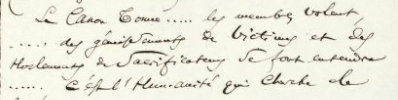 Le Canon Tonne ..... les membres volent
..... des gémissements de Victimes et des
Hurlements de Sacrificateurs se font entendre
...... C'est l'Humanité qui Cherche le